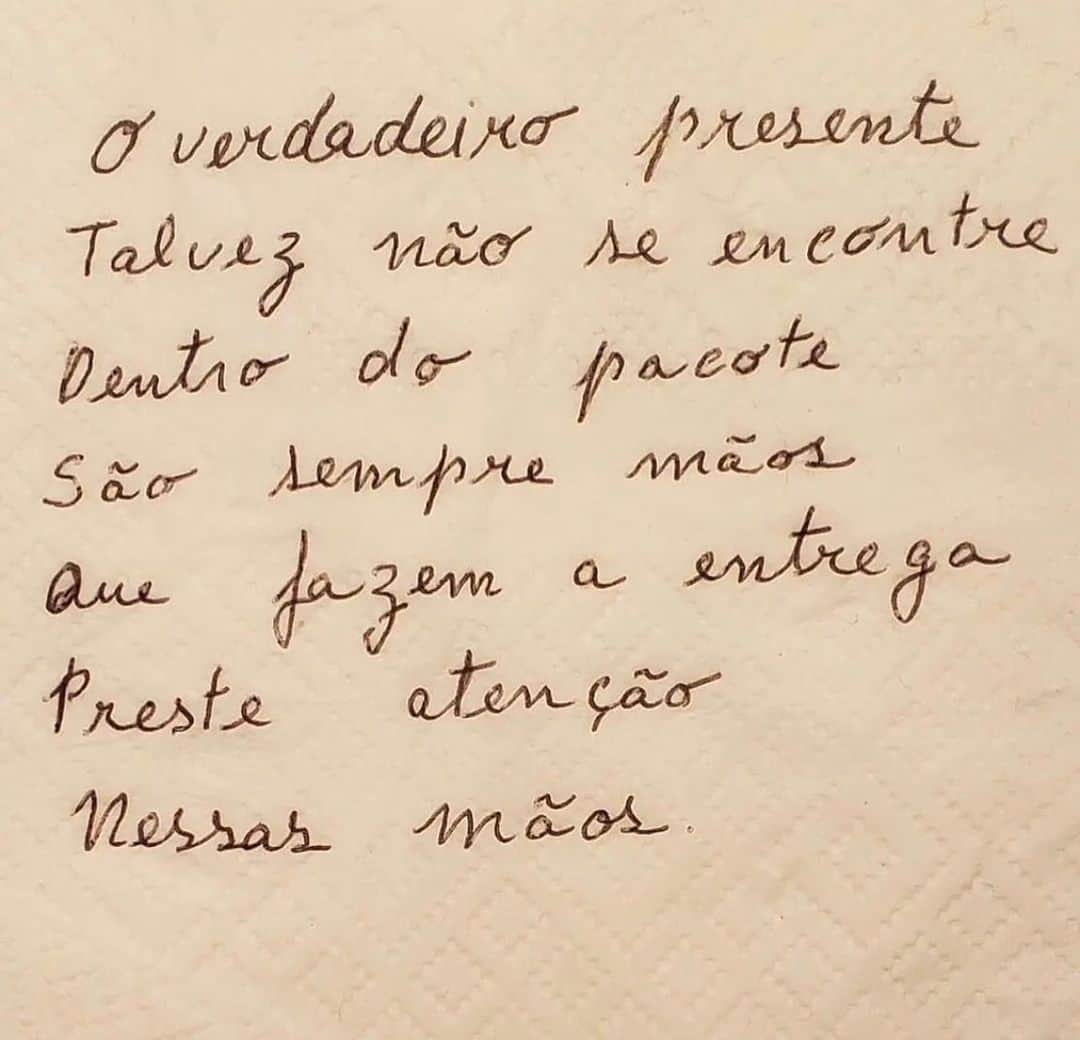 O verdadeiro presente
Talvez não se encontre
Dentro do pacote
São sempre mãos
Que fazem a entrega
Preste atenção
Nessas mãos.